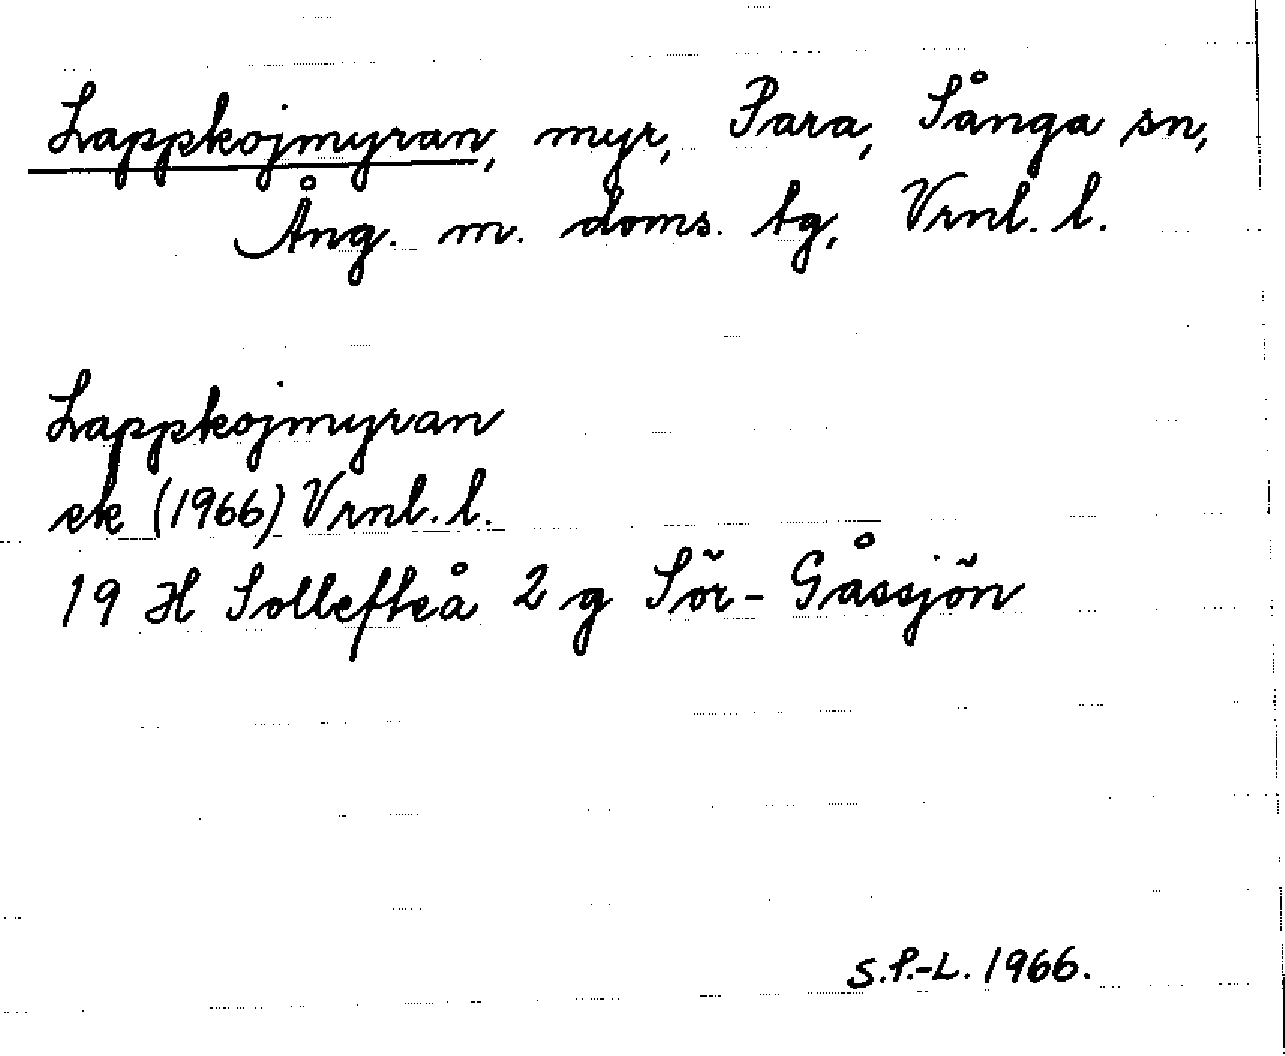 Lappkojmyran, myr, Para, Sånga sn,
Ång. m. doms. tg, Vrnl. l.
Lappkojmyran
ek (1966) Vrnl. l.
19 H Sollefteå 2 g Sör-Gåssjön
S.P.-L. 1966.